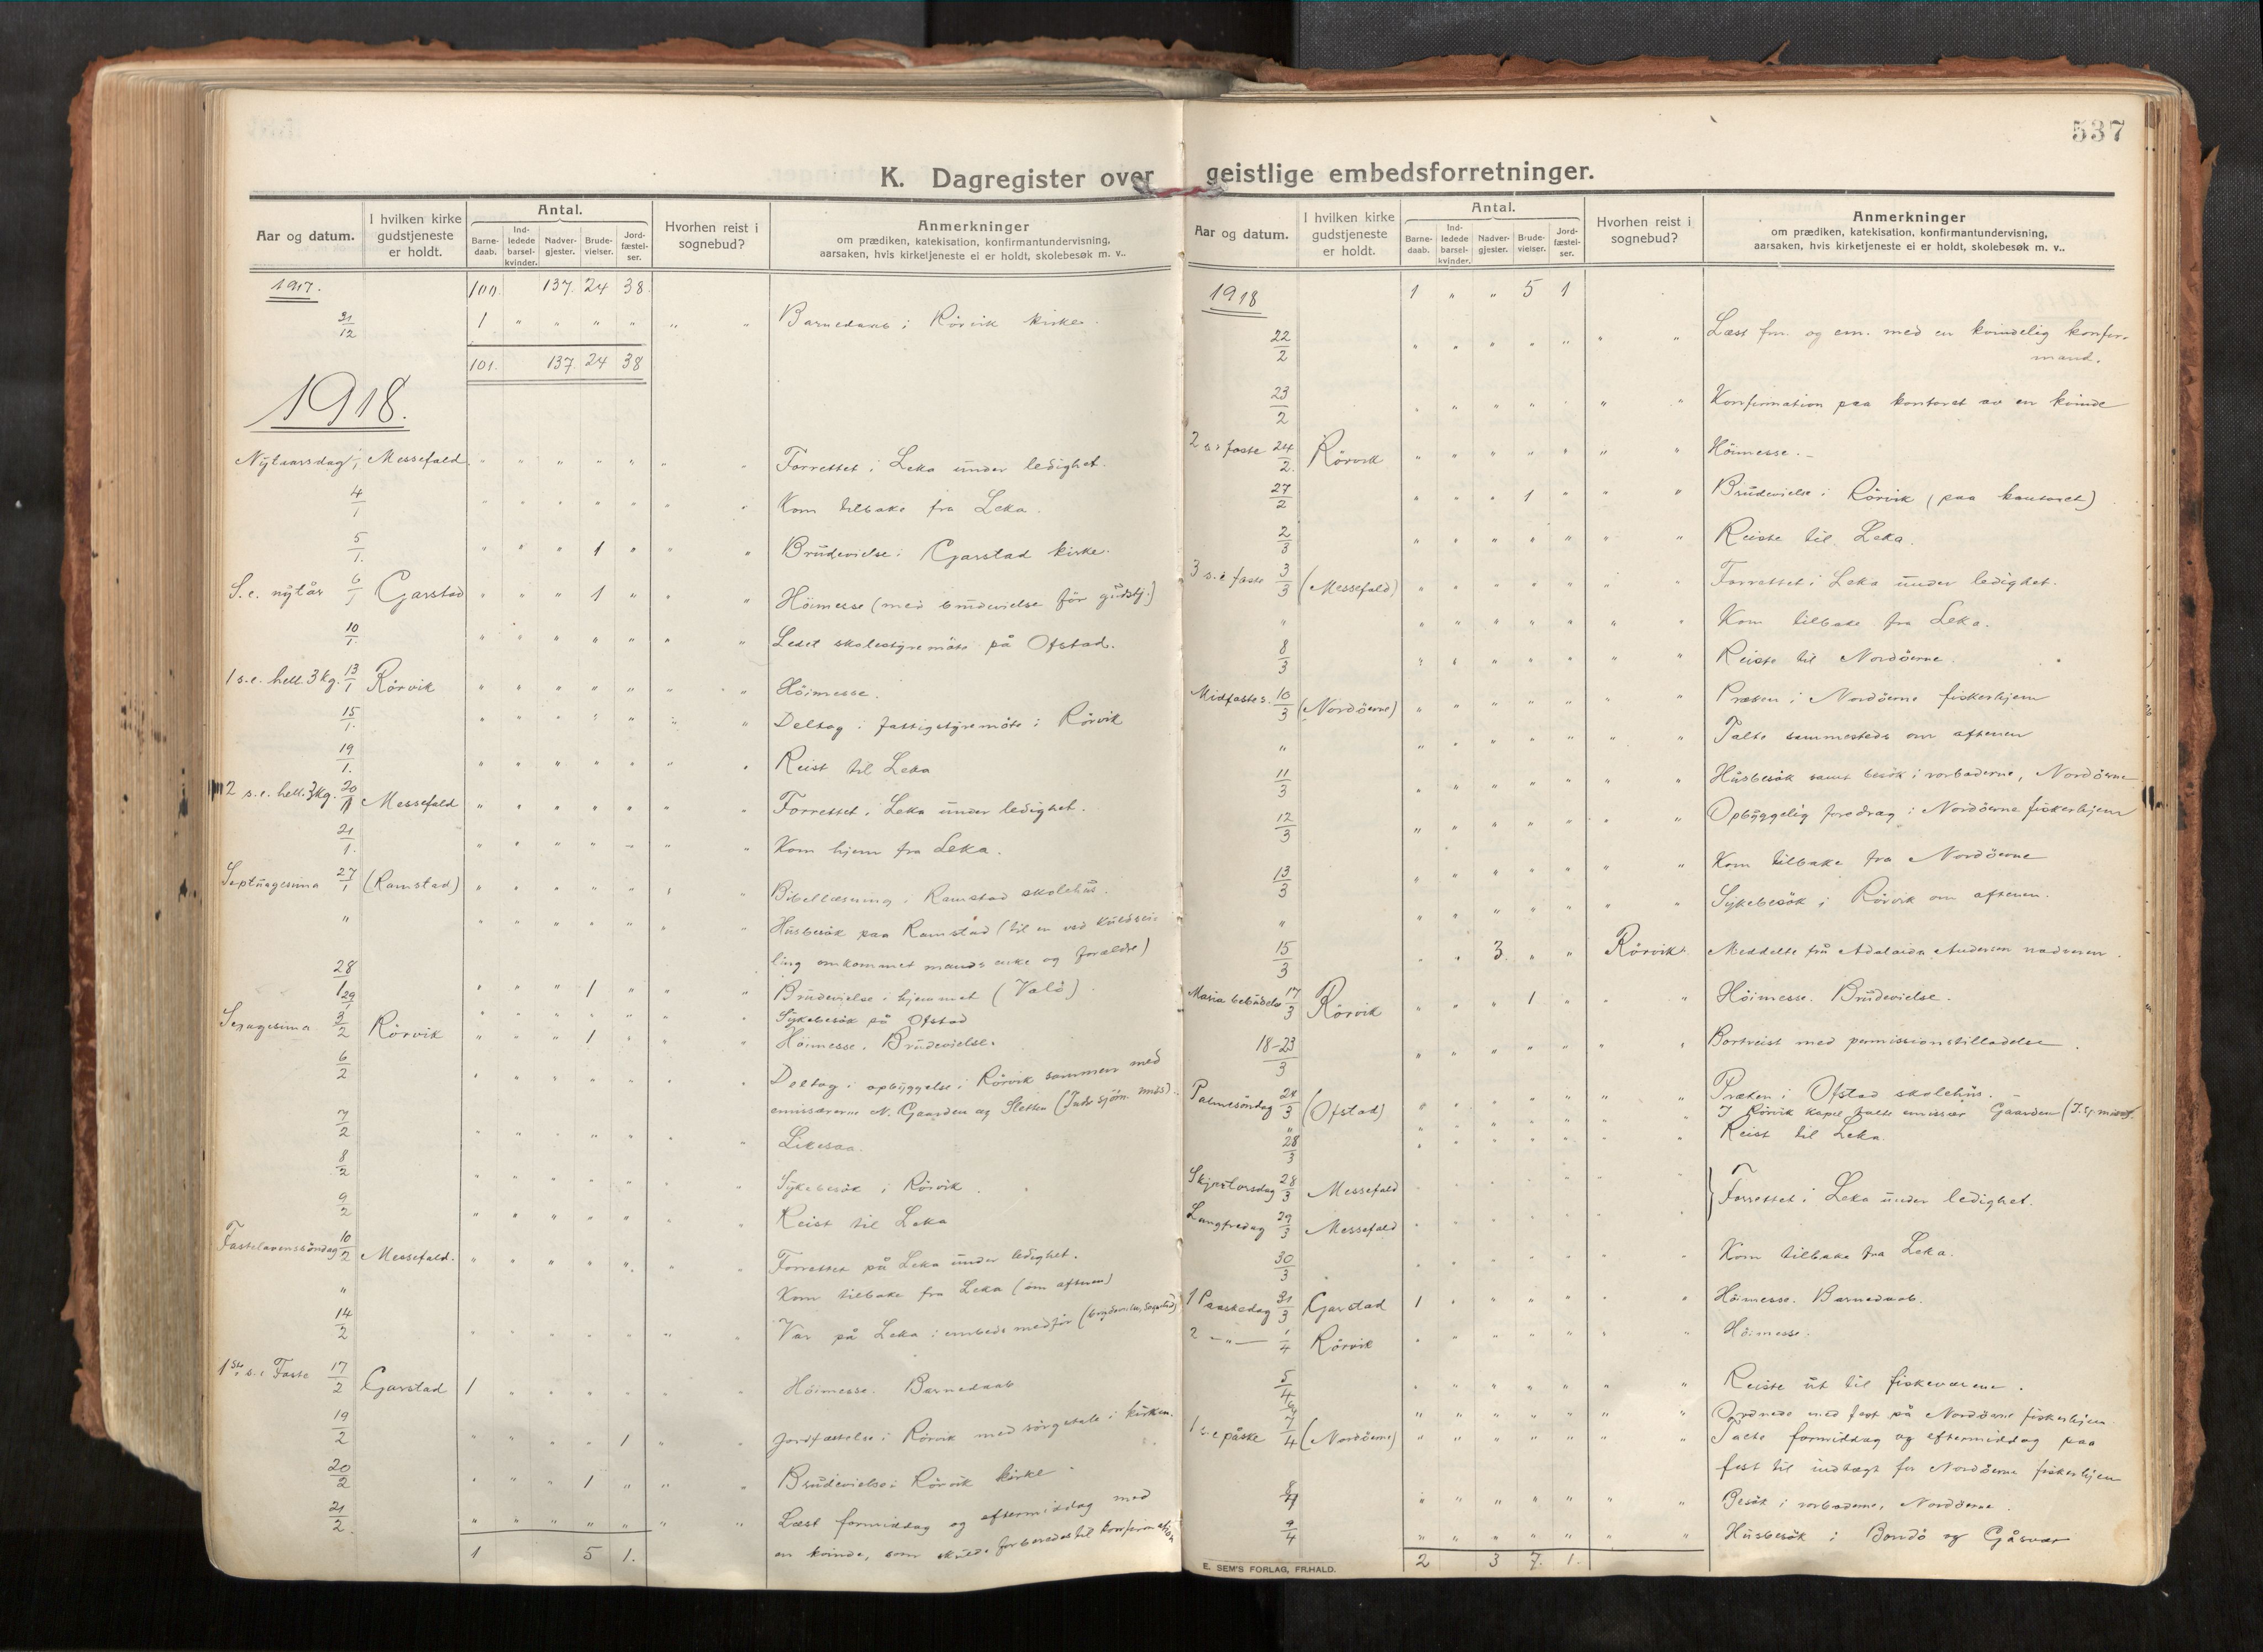 537
K. Dagregister over geistlige embedsforretninger.
Aar og datum. I hvilken kirke gudstjeneste er holdt. Antal. Barne-daab. Ind-ledede barsel-kvinder. Nadver-gjester. Brude-vielser. Jord-fæstel-ser. Hvorhen reist i sognebud? Anmerkninger om prædiken, katekisation, konfirmantundervisning, aarsaken, hvis kirketjeneste ei er holdt, skolebesøk m. v..
1917. 100. 137. 24 38.
31/12 1 " " " " " " Barnedaab i Rörvik kirke.
101. 137. 24 38
1918.
Nytaarsdag 1/1 Messefald " " " " " " " Forrettet i Leka under ledighet.
4/1 " " " " " " " Kom tilbake fra Leka.
5/1. " " " 1 " " " Brudevielse i Garstad kirke.
S. e. nytår 6/1 Garstad " " " 1 " " " Höimesse (med brudevielse för gudstj.)
10/1. " " " " " " " Ledet skolestyremöte på Ofstad.
1 s. e. hell. 3 kg. 13/1 Rörvik " " " " " " " Höimesse.
15/1. " " " " " " " Deltog i fattigstyremöte i Rörvik
19/1. " " " " " " " Reist til Leka
2 s. e. hell. 3 kg. 20/1 Messefald " " " " " " " Forrettet i Leka under ledighet.
21/1. " " " " " " " Kom hjem fra Leka.
Septuagesima 27/1 (Ramstad) " " " " " " " Bibellæsning i Ramstad skolehus.
" " " " " " " " Husbesök paa Ramstad (til en ved kuldsei-
ling omkommet mands enke og forældre)
28/1 " " " 1 " " " Brudevielse i hjemmet (Valö).
29/1 " " " " " " " Sykebesök på Ofstad
Sexagesima 3/2 Rörvik " " " 1 " " " Höimesse. Brudevielse.
6/2 " " " " " " " Deltog i opbyggelse i Rörvik sammen med
emissærerne N. Gaarden og Sletten (Indr. sjöm. miss).
7/2 " " " " " " " Likesaa.
8/2 " " " " " " " Sykebesök i Rörvik.
9/2 " " " " " " " Reist til Leka
Fastelavenssöndag 10/2 Messefald. " " " " " " " Forrettet på Leka under ledighet.
" Kom tilbake fra Leka (om aftenen)
14/2 " " " " " " " Var på Leka i embeds medför
1ste s. i Faste 17/2 Garstad 1 " " " " " " Höimesse. Barnedaab
19/2 " " " " 1 " " Jordfæstelse i Rörvik med sörgetale i kirken.
20/2 " " " 1 " " " Brudevielse i Rörvik kirke.
21/2. " " " " " " " Læst formiddag og eftermiddag med
en kvinde, som skulde forberedes til konfirmation
1 5 1.
Aar og datum. I hvilken kirke gudstjeneste er holdt. Antal. Barne-daab. Ind-ledede barsel-kvinder. Nadver-gjester. Brude-vielser. Jord-fæstel-ser. Hvorhen reist i sognebud? Anmerkninger om prædiken, katekisation, konfirmantundervisning, aarsaken, hvis kirketjeneste ei er holdt, skolebesøk m. v..
1918 1 " " 5 1
22/2 " " " " " " " Læst fm. og em. med en kvindelig konfir-
mand.
23/2 " " " " " " " Konfirmation paa kontoret av en kvinde
2 s. i faste 24/2. Rörvik " " " " " " " Höimesse.
27/2 " " " 1 " " " Brudevielse i Rörvik (paa kontoret)
2/3 " " " " " " " Reiste til Leka.
3 s. i faste 3/3 (Messefald) " " " " " " " Forrettet i Leka under ledighet.
" " " " " " " " Kom tilbake fra Leka.
8/3 " " " " " " " Reiste til Nordöerne.
Midfaste s. 10/3 (Nordöerne) " " " " " " " Præken i Nordöerne fiskerhjem
" " " " " " " " Talte sammesteds om aftenen
11/3 " " " " " " " Husbesök samt besök i rorboderne, Nordöerne
12/3 " " " " " " " Opbyggelig foredrag i Nordöerne fiskerhjem
13/3 " " " " " " " Kom tilbake fra Nordöerne
" " " " " " " " Sykebesök i Rörvik om aftenen.
15/3 " " 3. " " Rörvik. Meddelte fru Adelaida Andersen nadveren.
Maria budskb. 17/3 Rörvik " " " 1 " " " Höimesse. Brudevielse.
18-23/3 " " " " " " " Bortreist med permissionstilladelse.
Palmesöndag 24/3 (Ofstad) " " " " " " " Præken i Ofstad skolehus.
" " " " " " " " I Rörvik kapel talte emissær Gaarden
28/3 " " " " " " " Reist til Leka.
Skjærtorsdag 28/3 Messefald " " " " " " " } Forrettet i Leka under ledighet.
Langfredag 29/3 Messefald " " " " " " "
30/3 " " " " " " " Kom tilbake fra Leka.
1 Paaskedag 31/3 Garstad 1 " " " " " " Höimesse. Barnedaab.
2 — " — 1/4 Rörvik " " " " " " " Höimesse.
5/4 " " " " " " " Reiste ut til fiskeværene.
6/4 " " " " " " " Ordnede med fest på Nordöerne fiskerhjem.
1 s. e. påske 7/4 (Nordöerne) " " " " " " " Talte formiddag og eftermiddag paa
fest til indtægt for Nordöerne fiskerhjem
8/4 " " " " " " " Besök i rorboderne, Nordöerne.
9/4 " " " " " " " Husbesök i Bondö og Gåsvær
2 3 7. 1.
E. SEM'S FORLAG, FR.HALD.